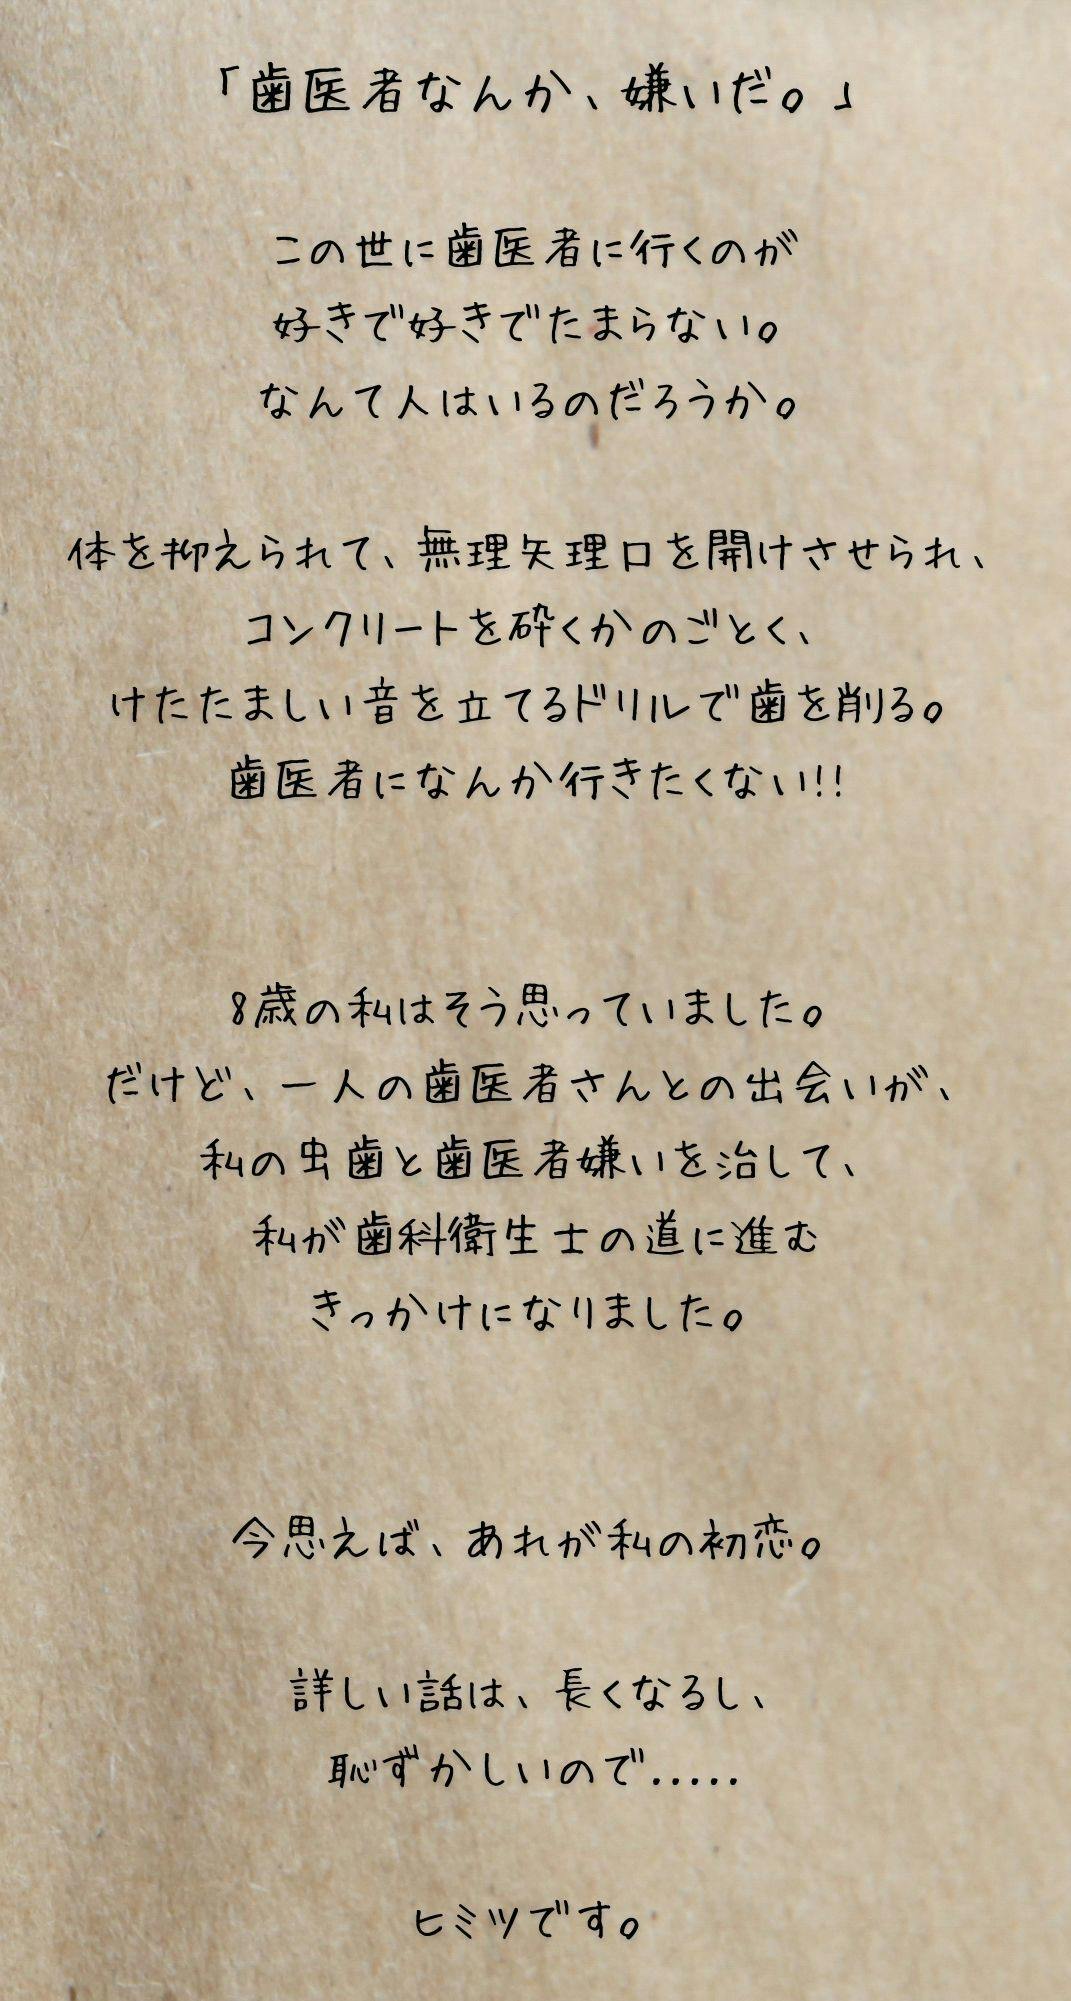 「歯医者なんか、嫌いだ。」
この世に歯医者に行くのが
好きで好きでたまらない。
なんて人はいるのだろうか。
体を抑えられて、無理矢理口を開けさせられ、
コンクリートを砕くかのごとく、
けたたましい音を立てるドリルで歯を削る。
歯医者になんか行きたくない!!
8歳の私はそう思っていました。
だけど、一人の歯医者さんとの出会いが、
私の虫歯と歯医者嫌いを治して、
私が歯科衛生士の道に進む
きっかけになりました。
今思えば、あれが私の初恋。
詳しい話は、長くなるし、
恥ずかしいので.....
ヒミツです。